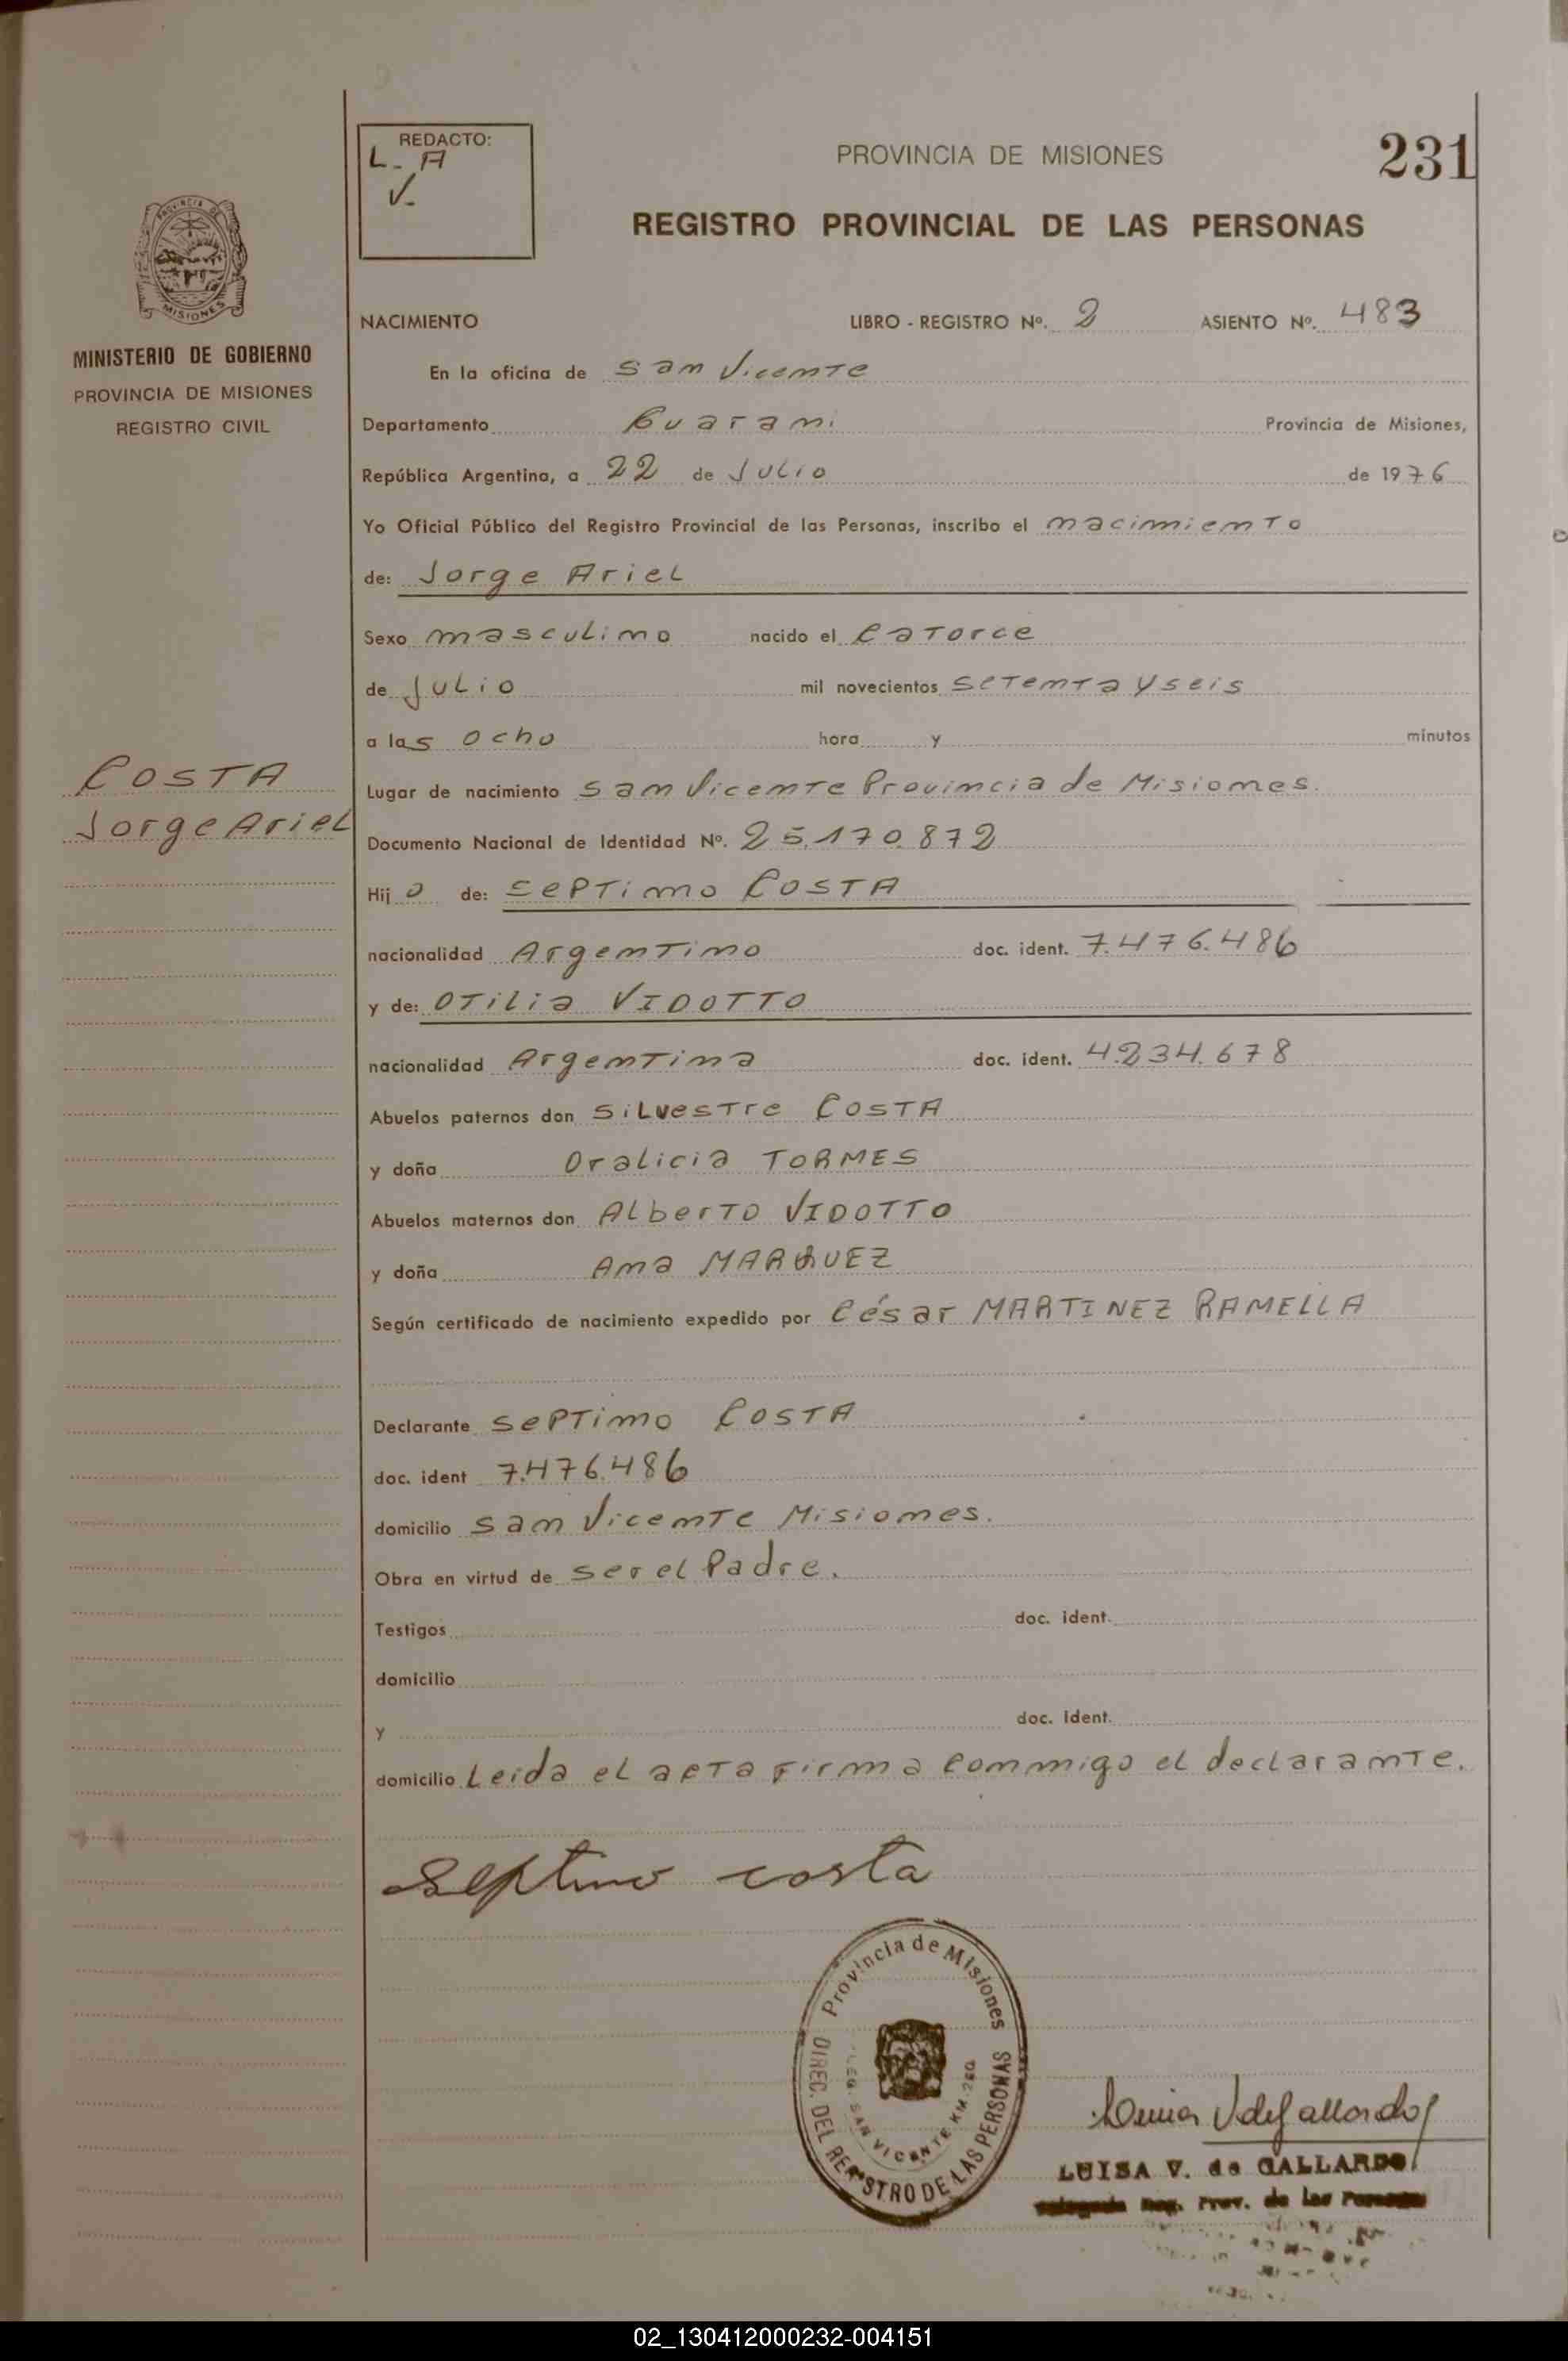 REDACTO:
L. A
V.
PROVINCIA DE MISIONES
231
REGISTRO PROVINCIAL DE LAS PERSONAS
PROVINCIA DE
MISIONES
MINISTERIO DE GOBIERNO
PROVINCIA DE MISIONES
REGISTRO CIVIL
NACIMIENTO LIBRO - REGISTRO Nº. 2 ASIENTO Nº. 483
En la oficina de San Vicente
Departamento Guarani Provincia de Misiones,
República Argentina, a 22 de Julio de 1976
Yo Oficial Público del Registro Provincial de las Personas, inscribo el nacimiento
de: Jorge Ariel
Sexo masculino nacido el Catorce
de Julio mil novecientos setenta y seis
a las ocho hora y minutos
COSTA
Jorge Ariel
Lugar de nacimiento San Vicente Provincia de Misiones.
Documento Nacional de Identidad Nº. 25.170.872
Hijo de: Septimo COSTA
nacionalidad Argentino doc. ident. 7.476.486
y de: Otilia VIDOTTO
nacionalidad Argentina doc. ident. 4.234.678
Abuelos paternos don Silvestre COSTA
y doña Oralicia TORMES
Abuelos maternos don Alberto VIDOTTO
y doña Ana MARQUEZ
Según certificado de nacimiento expedido por César MARTINEZ RAMELLA
Declarante Septimo COSTA
doc. ident 7.476.486
domicilio San Vicente Misiones.
Obra en virtud de ser el Padre.
Testigos doc. ident.
domicilio
y doc. ident.
domicilio Leida el acta firma conmigo el declarante.
Septimo costa
Provincia de Misiones
DIREC. DEL REGISTRO DE LAS PERSONAS
SAN VICENTE KM. 260
Luisa V de Gallardo
LUISA V. de GALLARDO
Reg. Prov. de las Personas
02_130412000232-004151